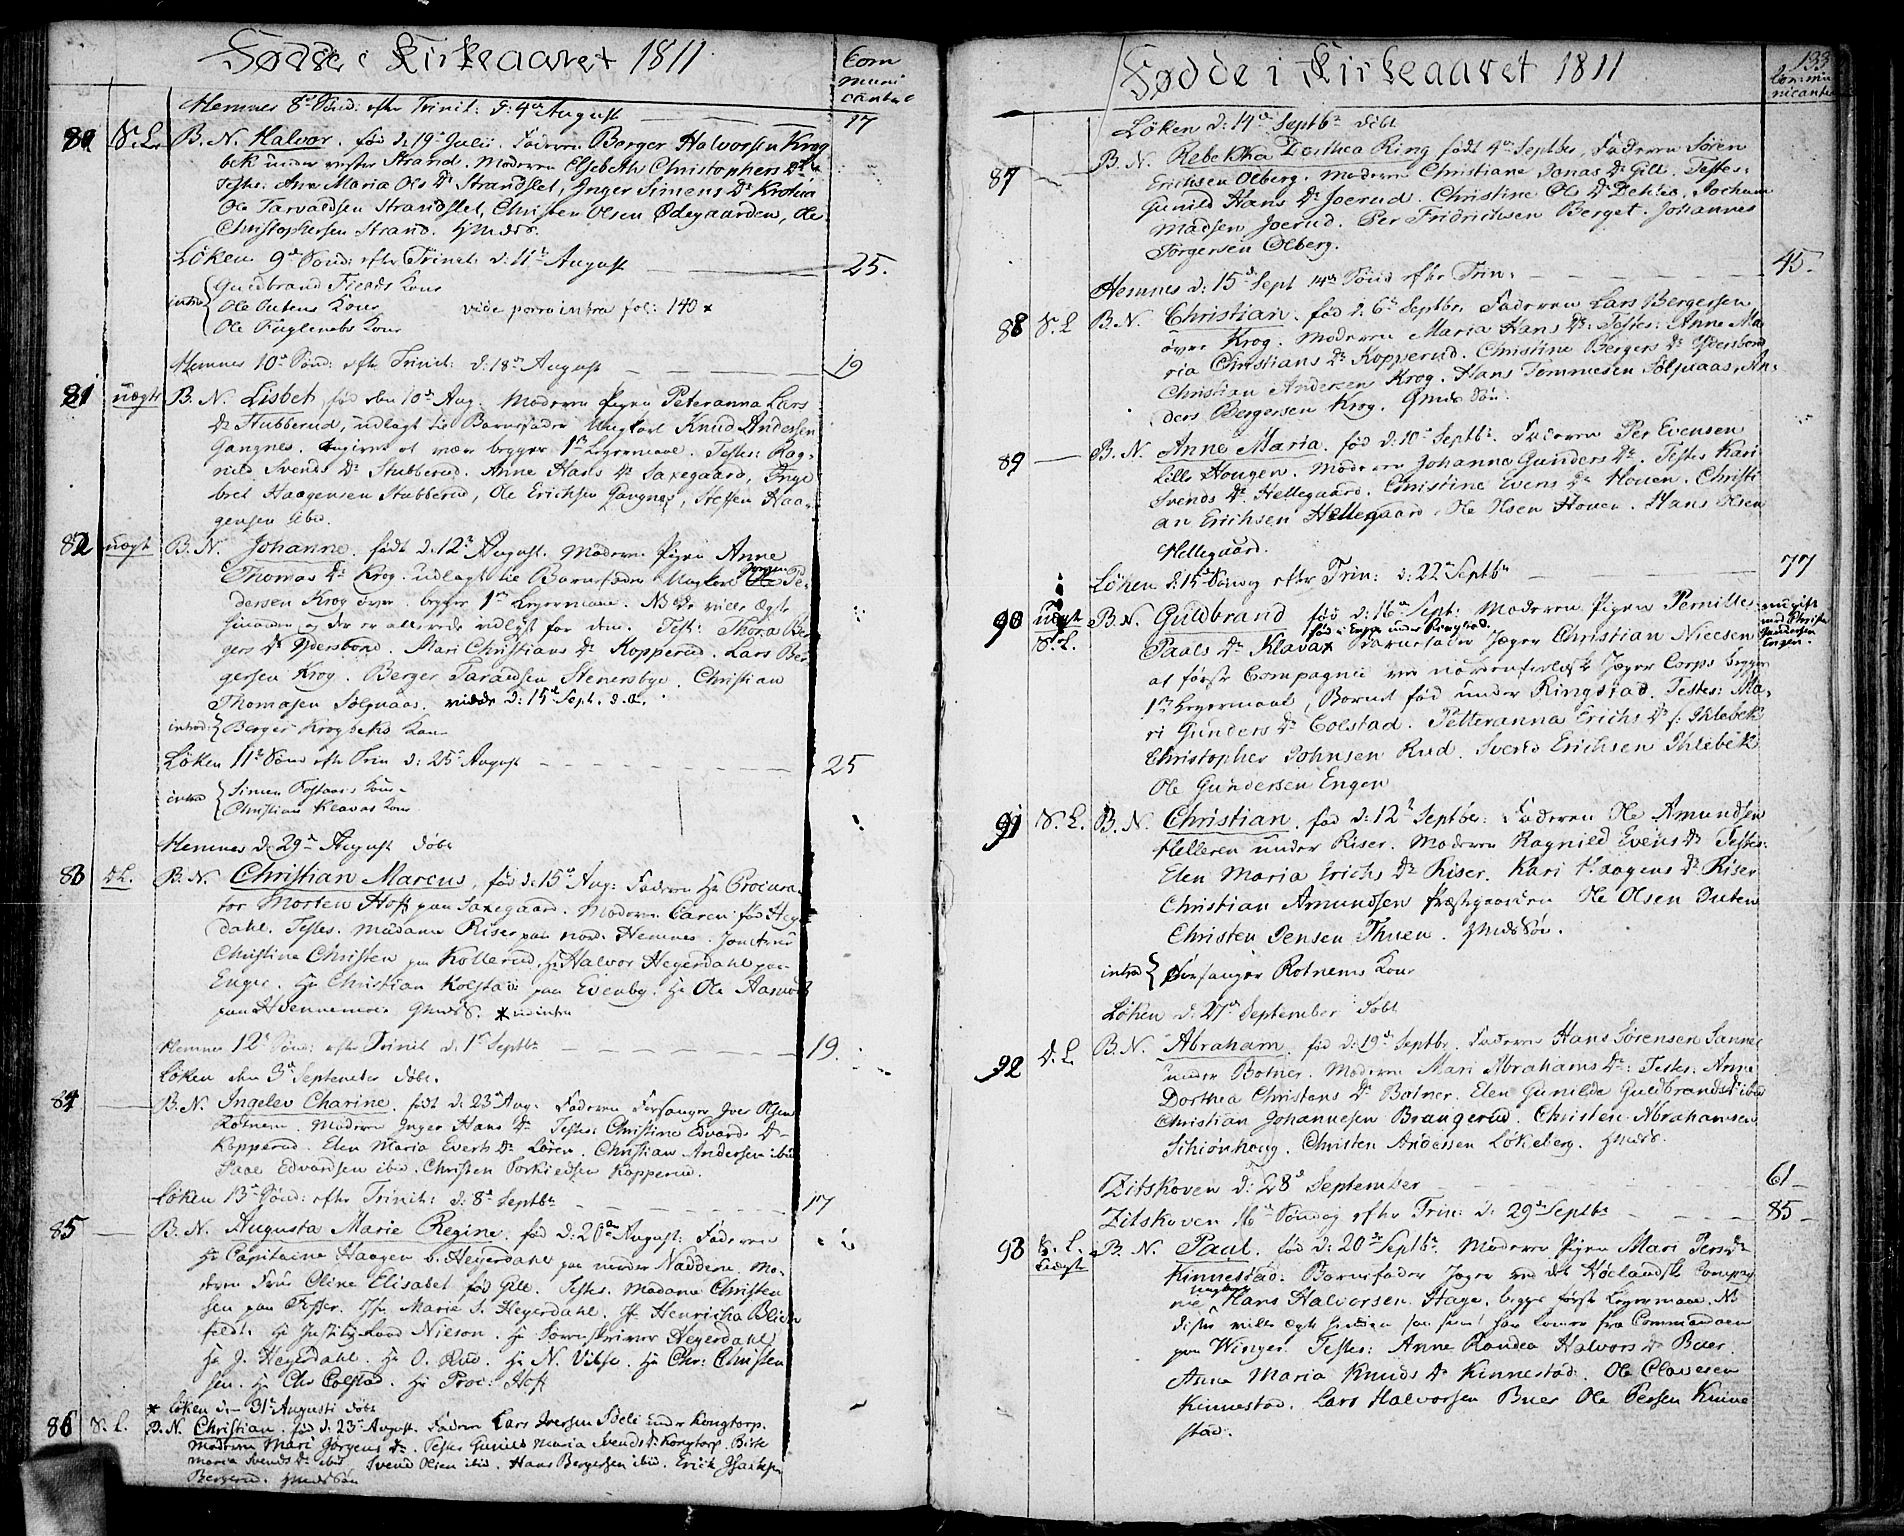 Fødde i Kirkeaaret 1811
Com
muni
cantes
Hemnes 8de Sönd: efter Trinit: d: 4de August 17
80 S. L. B. N. Halvor, fød d: 19de Julii. Faderen Berger Halvorsen Krog
bek under vester Strand. Moderen Elsebeth Christophers Dr
Testes: Ane Maria Ols Dr Strandslet, Inger Simens Dr
Ole Tarvaldsen Strandslet, Christen Olsen Ødegaarden, Ole
Christophersen Strand.
Löken 9de Sönd: efter Trinit: d: 11te August 25.
intro Guldbrand Kone
Ole Dutens Kone
Ole Fuglenebs Kone
vide porro intra fol: 140 x
Hemnes 10de Sönd: efter Trinit: d: 18de August 19
81 uægte B. N. Lisbet, fød den 10de Aug. Moderen Pigen Peteranna Lars
Dr Stubberud, udlagt til Barnefader Ungkarl Knud Andersen
Gangnes. angivet at være begges 1ste Leyermaal. Testes: Rag-
nild Svends Dr Stubberud. Anne Hans Dr Saxegaard, Inge
bret Haagensen Stubberud, Ole Erichsen Gangnes, Steffen Haa-
gensen ibid.
82 uægt B. N. Johanne. født d: 12te August. Moderen Pigen Anne
Thomas Dr Krog. udlagt til Barnefader Ungkarl Ole Pe-
dersen Krog øvre. begges 1ste Leyermaal. NB de ville ægte
hinanden og der er allerede udlyst for dem. Test: Thora Ber
gers Dr Ydersbond. Mari Christians Dr Kopperud. Lars Ber
gersen Krog. Berger Taraldsen Stenersbye. Christian
Thomasen Sølpuaas. viede d: 15de Sept. d. a.
introd Berger Krogbeks Kone
Löken 11te Sönd efter Trin d: 25de August 25
introd Simen Kone
Christian Klavas Kone
Hemnes d: 29de August døbt
83 D.L. B. N. Christian Marcus, fød d: 15de Aug: Faderen Hr Procura-
tor Morten Hoff paa Saxegaard. Moderen Caren fød Hey
dahl. Testes. Madame Riser paa nord. Hemnes. Jomfrue
Christine Christen paa Kollerud, Hr Halvor Hegerdahl paa
Enger. Hr Christian Kolstad paa Evenby. Hr Ole Aamodt
paa
Hemnes 12te Sönd: efter Trinit d: 1ste Septbr 19.
Löken den 3de September døbt.
84 B. N. Ingelev Charine. født d: 23de Aug. Faderen Forsanger Iver Olsen
Rotnem. Moderen Inger Hans Dr Testes: Christine Edvards Dr
Kopperud. Elen Maria Everts Dr Lören. Christian Andersen ibid
Paal Edvardsen ibid. Christen Torkildsen Kopperud.
Löken 13de Sönd: efter Trinit: d: 8de Septbr 17
85 B. N. Augusta Marie Regine. fød d: 20de August: Faderen
Hr Capitaine Haagen v. Hegerdahl paa nordre Naddern. Mo-
deren Frue Oline Elisabet fød Gill. Testes. Madame Christen
sen paa Fosser. Marie S. Hegerdahl. Henricha Blich
feldt. Hr Justitz Raad Nielson. Hr Sorenskriver Hegerdahl
Hr J. Hegerdahl. Hr O. Rud. Hr N. Vibse. Hr Chr: Christen
sen. Hr Chr Colstad. Hr Proc: Hoff
* Löken den 31te Augusti døbt
86 S. L. B. N. Christian. fød d: 23de August. Faderen Lars Iversen under Kongtorp.
Moderen Mari Jørgens Dr. Testes Gunild Maria Svends Dr Kongtorp. Birte
Maria Svends Dr ibid Svend Olsen ibid. Hans Bergersen ibid. Erich
Bergerud.
Fødde i Kirkeaaret 1811
133
Commu
nicantes
Löken d: 14de Septbr døbt
87 B. N. Rebekka Dorthea Ring født 4de Septbr, Faderen Sören
Erichsen Olberg. Moderen Christiane Jonas Dr Gill. Testes:
Gunild Hans Dr Joerud. Christine Ols Dr Dehlie. Jocham
Madsen Joerud. Per Fridrichsen Berget. Johannes
Torgersen Olberg.
Hemnes d: 15de Sept 14de Sönd efter Trin: 45.
88 S. L B. N. Christian. fød d: 6te Septbr. Faderen Lars Bergersen
øvre Krog. Moderen Maria Hans Dr: Testes: Anne Ma-
ria Christians Dr Kopperud. Christine Bergers Dr Ydersbond
Christian Andersen Krog. Hans Tommesen Sölpuaas, An-
ders Bergersen Krog.
89 B. N. Anne Maria. fød d: 10de Septbr. Faderen Per Evensen
Lille Hougen. Moderen Johanna Gunders Dr. Testes Kari
Svends Dr Hellegaard. Christine Evens Dr Houen. Christi
an Erichsen Hellegaard. Ole Olsen Houen. Hans Olsen
Hellegaard.
Löken d: 15de Söndag efter Trin: d: 22de Septbr 77
90 uægt S. L. B. N. Guldbrand fød d: 16de Sept: Moderen Pigen Pernille
Paals Dr Klavax Barnefader Jæger Christian Nielsen
fød i Engen under Ringstad.
af förste Compagnie ved nordenfieldske Jæger Corps begges
1ste Leyermaal, Barnet fød under Ringstad. Testes: Ma-
ri Gunders Dr Colstad. Petteranna Erichs Dr Ihlebek
Christopher Johnsen Rud. Svend Erichsen Ihlebek
Ole Gundersen Engen
91 S. L. B. N. Christian. fød d: 12te Septbr: Faderen Ole Amundsen
Helleren under Riser. Moderen Ragnild Evens Dr Testes:
Elen Maria Erichs Dr Riser. Kari Haagens Dr Riser
Christian Amundsen Præstgaarden Ole Olsen Duten
Christen Jensen Thuen.
introd Forsanger Rotnems Kone
Löken d. 27de September døbt
92 D. L. B. N. Abraham. fød d: 19de Septbr. Faderen Hans Sörensen Sannes
under Botner. Moderen Mari Abrahams Dr: Testes: Anne
Dorthea Christens Dr Botner. Elen Gunilde Guldbrands Dr ibid
Christian Johannesen Brangerud. Christen Abrahamsen
Schiönhoug. Christen Andersen Lökeberg.
Zitskoven d: 28de September 61
Zitskoven 16de Söndag efter Trin: d: 29de Septbr 85
93 S. L. uægt B. N. Paul. fød d: 20de Septbr. Moderen Pigen Mari Pers Dr
Kinnestad. Barnefader Jæger ved det Hölandske Compag
nie Ungkarl Hans Halvorsen Hage. begges förste Leyermaal. NB
disse ville ægte hinanden saa snart han kommer fra Commandoen
paa Winger. Testes: Anne Randea Halvors Dr Buer.
Anne Maria Knuds Dr Kinnestad. Ole Clavesen
Kinnestad. Lars Halvorsen Buer Ole Persen Kinne
stad.